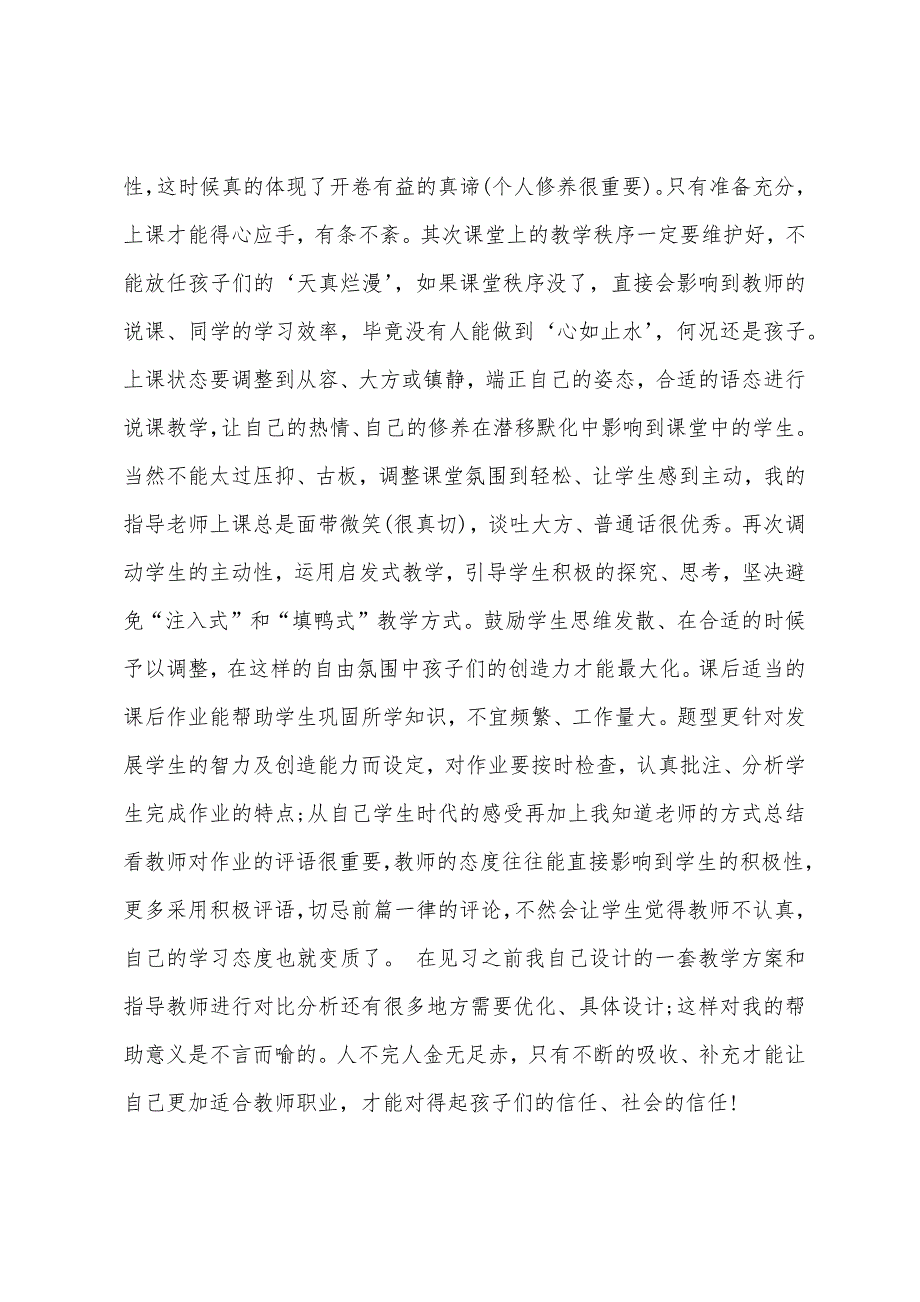 性,这时候真的体现了开卷有益的真谛(个人修养很重要)。只有准备充分，
上课才能得心应手，有条不紊。其次课堂上的教学秩序一定要维护好，不
能放任孩子们的‘天真烂漫’，如果课堂秩序没了，直接会影响到教师的
说课、同学的学习效率，毕竟没有人能做到‘心如止水’，何况还是孩子。
上课状态要调整到从容、大方或镇静，端正自己的姿态，合适的语态进行
说课教学,让自己的热情、自己的修养在潜移默化中影响到课堂中的学生。
当然不能太过压抑、古板，调整课堂氛围到轻松、让学生感到主动，我的
指导老师上课总是面带微笑(很真切)，谈吐大方、普通话很优秀。再次调
动学生的主动性，运用启发式教学，引导学生积极的探究、思考，坚决避
免“注入式”和“填鸭式”教学方式。鼓励学生思维发散、在合适的时候
予以调整，在这样的自由氛围中孩子们的创造力才能最大化。课后适当的
课后作业能帮助学生巩固所学知识，不宜频繁、工作量大。题型更针对发
展学生的智力及创造能力而设定，对作业要按时检查，认真批注、分析学
生完成作业的特点;从自己学生时代的感受再加上我知道老师的方式总结
看教师对作业的评语很重要,教师的态度往往能直接影响到学生的积极性，
更多采用积极评语,切忌前篇一律的评论,不然会让学生觉得教师不认真，
自己的学习态度也就变质了。 在见习之前我自己设计的一套教学方案和
指导教师进行对比分析还有很多地方需要优化、具体设计;这样对我的帮
助意义是不言而喻的。人不完人金无足赤，只有不断的吸收、补充才能让
自己更加适合教师职业，才能对得起孩子们的信任、社会的信任!